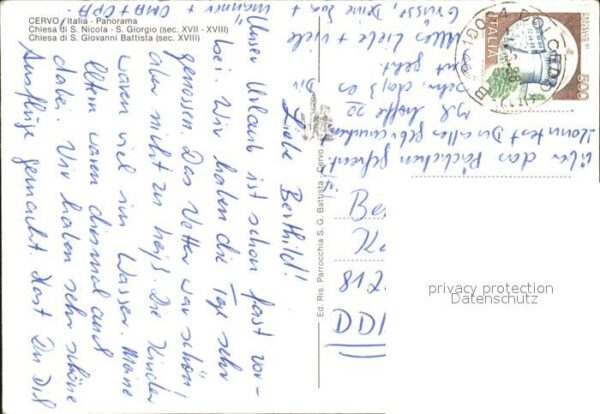 CERVO / Italia - Panorama
Chiesa di S. Nicola - S. Giorgio (sec. XVII - XVIII)
Chiesa di S. Giovanni Battista (sec. XVIII)
Liebe Berthild!
Unser Urlaub ist schon fast vor-
bei. Wir haben die Tage sehr
genossen. Das Wetter war schön
aber nicht zu heiß. Die Kinder
waren viel im Wasser. Meine
Eltern waren diesmal auch
dabei. Wir haben sehr schöne
Ausflüge gemacht. Hast Du Dich
über das Päckchen gefreut.
Konntest Du alles gebrauchen
Ich hoffe
sehr, daß es
Dir gut geht.
Alles Liebe + viele
Grüsse, Deine
Ed. Ris. Parrocchia S. G. Battista - Cervo
ITALIA
500
DDR
privacy protection
Datenschutz